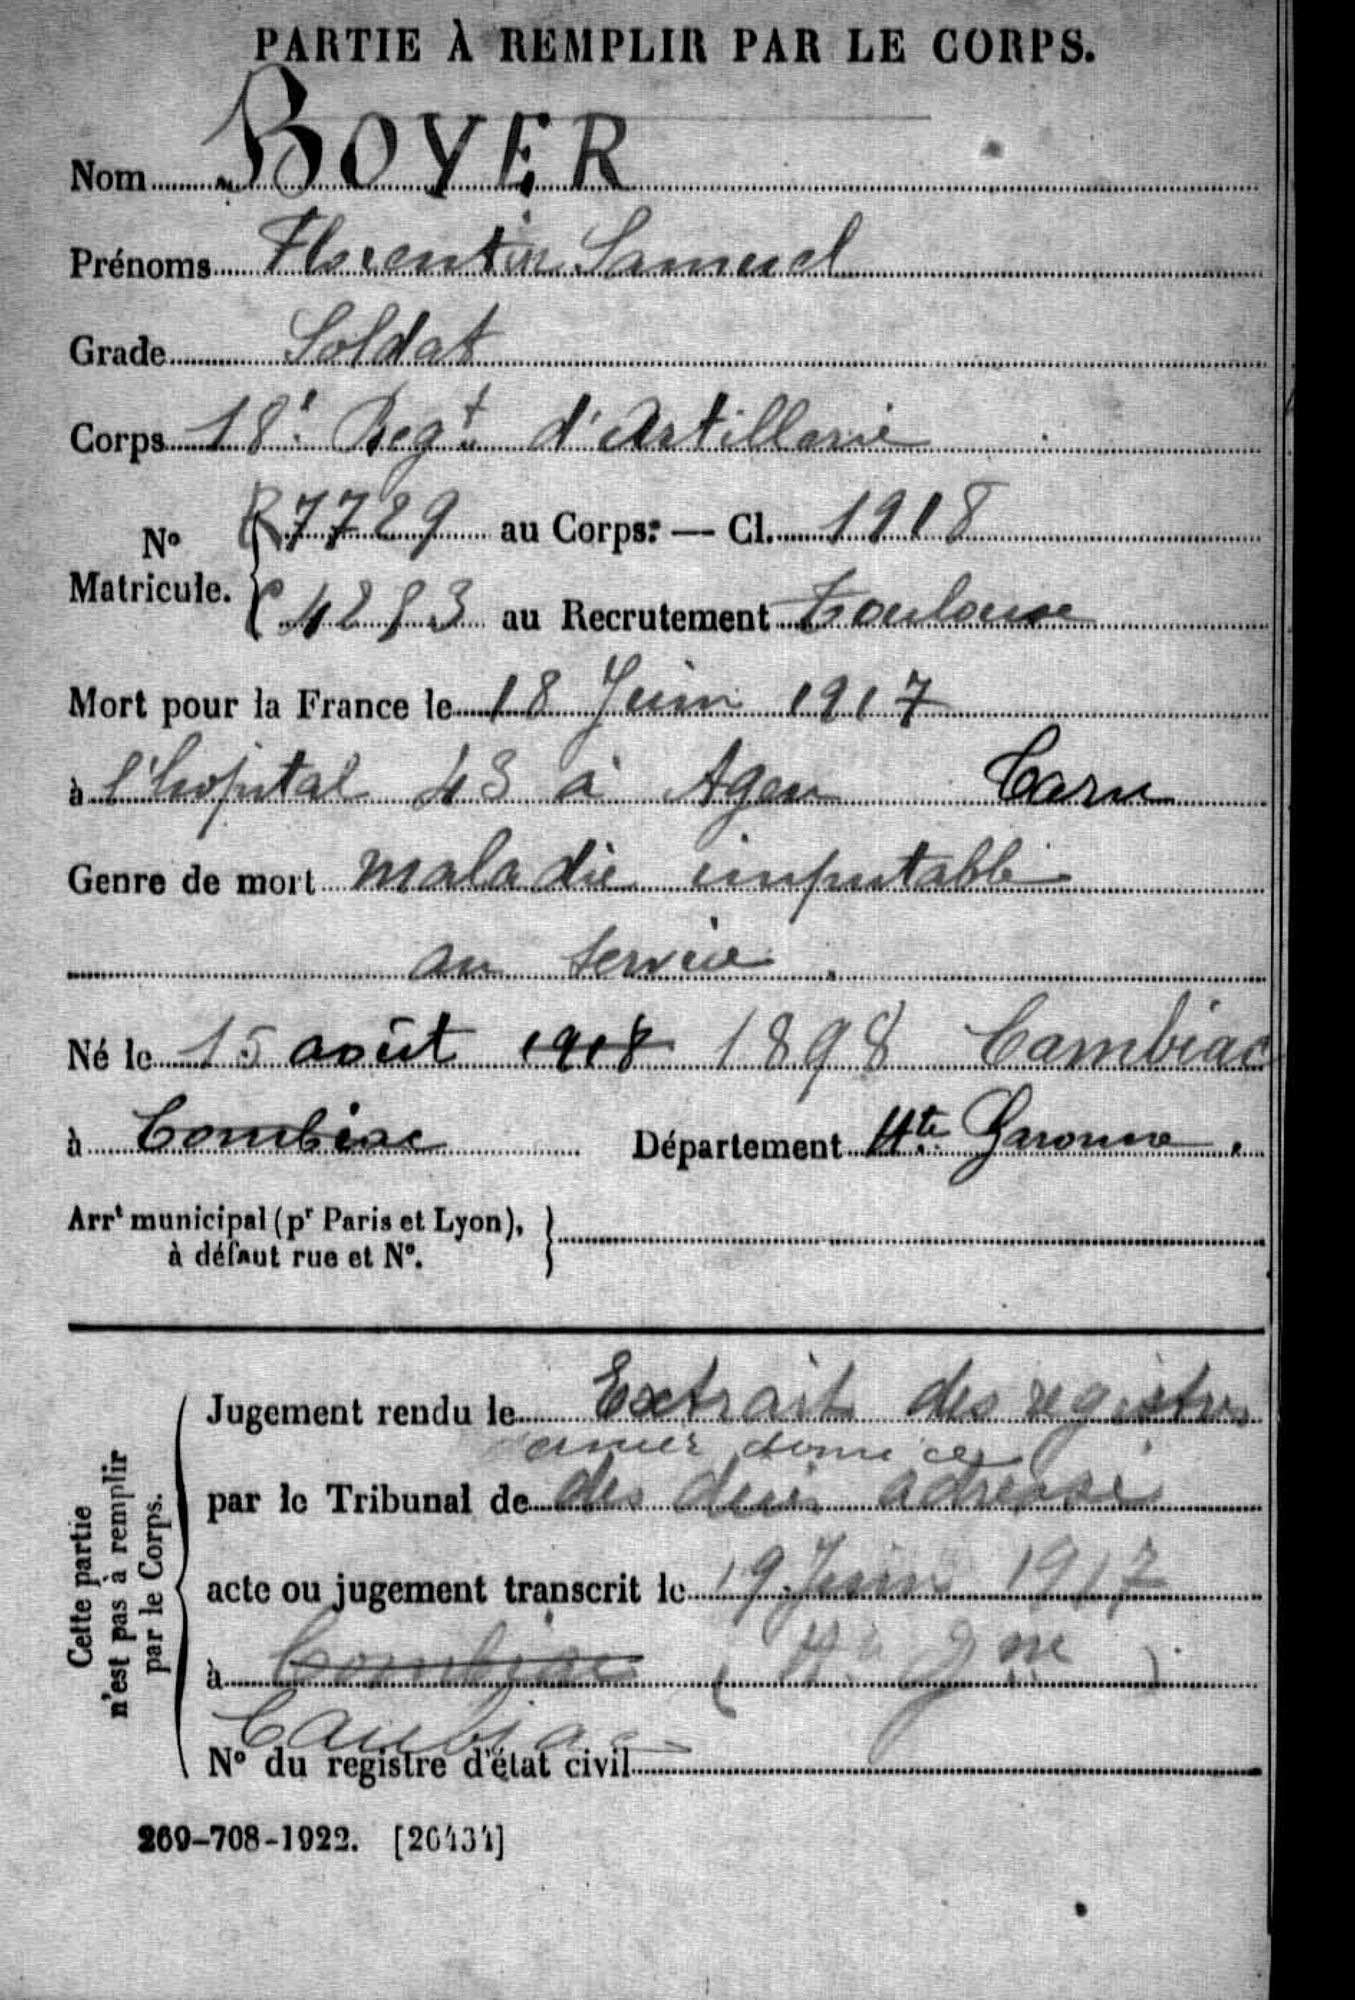 PARTIE À REMPLIR PAR LE CORPS.
Nom BOYER
Prénoms Florentin Samuel
Grade Soldat
Corps 18e Regt d'Artillerie
No Matricule. R 7729 au Corps: — Cl. 1918
4283 au Recrutement Toulouse
Mort pour la France le 18 Juin 1917
à l'hopital 43 à Agen Tarn
Genre de mort maladie imputable
au service.
Né le 15 août 1918 1898 Cambiac
à Combiac Département Hte Garonne.
Arrt municipal (pr Paris et Lyon),
à défaut rue et No.
Cette partie
n'est pas à remplir
par le Corps.
Jugement rendu le Extrait des registres
par le Tribunal de des adresse
acte ou jugement transcrit le 19 Juin 1917
à Combiac (Hte Gne)
Caubiac
No du registre d'état civil
269-708-1922. [26434]